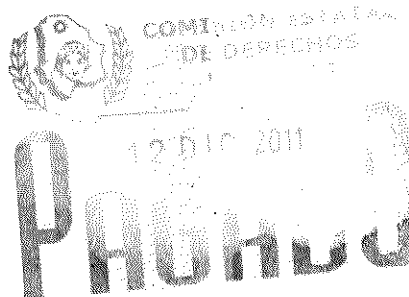 COMISIÓN ESTATAL
DE DERECHOS
12 DIC 2011
PAGADO